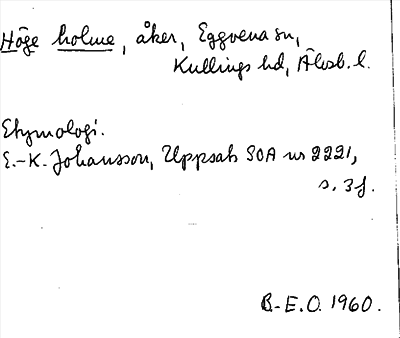 Höge holme, åker, Eggvena sn,
Kullings hd, Älvsb. l.
Etymologi.
E.-K. Johansson, Uppsats SOA nr 2221,
s. 3f.
B-E.O. 1960.